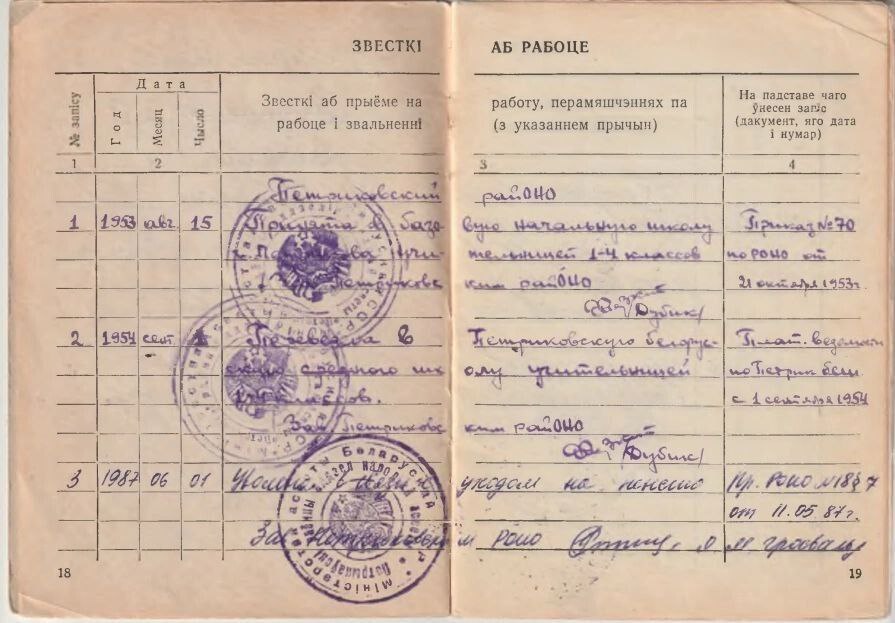 ЗВЕСТКІ АБ РАБОЦЕ
№ запісу
Дата
Год Месяц Чысло
Звесткі аб прыёме на работу, перамяшчэннях па
рабоце і звальненні (з указаннем прычын)
На падставе чаго
ўнесен запіс
(дакумент, яго дата
і нумар)
1 2 3 4
Петриковский райОНО
1 1953 авг. 15 Принята в вую начальную школу Приказ № 70
тельницей 1-4 классов по РОНО от
ким райОНО 21 октября 1953г.
/Дубик/
2 1954 сент. 1 Переведена в Петриковскую белорус- Плат. ведомости
скую среднюю шк олу учительницей по Петрик
классов. с 1 сентября 1954
Зав Петриковс ким райОНО
/Дубик/
3 1987 06 01 уходом на пенсию Пр. РОНО № 18 § 7
от 11.05.87г.
Зав. м РОНО
18 19